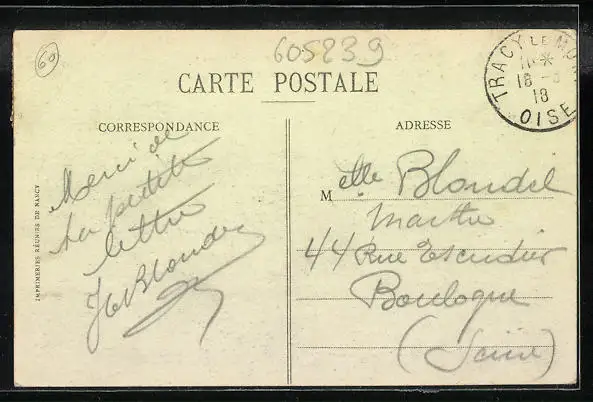 60
605239
CARTE POSTALE
TRACY LE MONT
11 *
18 - 3
18
OISE
CORRESPONDANCE
ADRESSE
Merci de
ta petite
lettre
Blondel
IMPRIMERIES RÉUNIES DE NANCY
Melle Blondel
Marthe
44 Rue Escudier
Boulogne
(Seine)